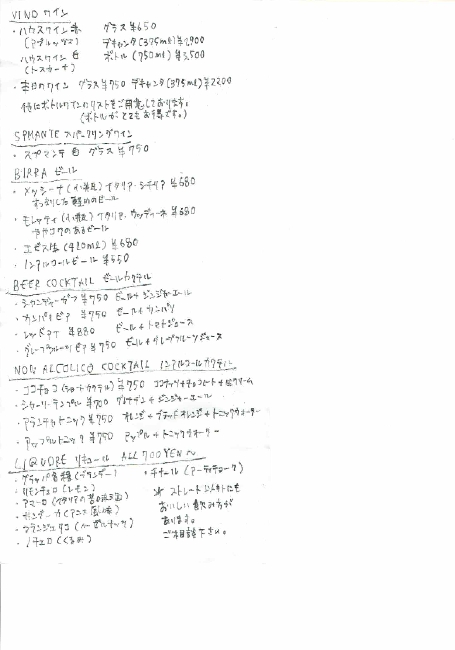 VINO ワイン
・ハウスワイン 赤 グラス ¥650
(アブルッツォ) デキャンタ(375ml)¥1,900
ハウスワイン 白 ボトル (750ml) ¥3,500
(トスカーナ)
・本日のワイン グラス ¥750 デキャンタ(375ml)¥2200
他にボトルワインのリストをご用意しております。
(ボトルが とてもお得です。)
SPMANTE スパークリングワイン
・スプマンテ 白 グラス ¥750
BIRRA ビール
・メッシーナ(小瓶) イタリア・シチリア ¥680
すっきりした軽めのビール
・モレッティ(小瓶) イタリア・ウッディーネ ¥680
コクのあるビール
・エビス (420ml) ¥680
・ノンアルコールビール ¥550
BEER COCKTAIL ビールカクテル
・シャンディーガフ ¥750 ビール+ジンジャエール
・カンパリビア ¥750 ビール+カンパリ
・レッドアイ ¥880 ビール+トマトジュース
・グレープフルーツビア ¥750 ビール+グレープフルーツジュース
NON ALCOLICO COCKTAIL ノンアルコールカクテル
・ココチョコ(ショートカクテル) ¥750 ココナッツ+チョコレート+生クリーム
・シャーリーテンプル ¥700 グレナデン+ジンジャーエール
・アランチャトニック ¥750 オレンジ+ブラッドオレンジ+トニックウォーター
・アップルトニック ¥750 アップル+トニックウォーター
LIQUORE リキュール ALL 700YEN〜
・グラッパ各種(ブランデー) ・チナール(アーティチョーク)
・リモンチェロ(レモン) ※ ストレート以外にも
・アマーロ(イタリアの苦のお酒) おいしい飲み方が
・サンブーカ(アニス風味) あります。
・フランジェリコ(ヘーゼルナッツ) ご相談下さい。
・ノチェロ(くるみ)